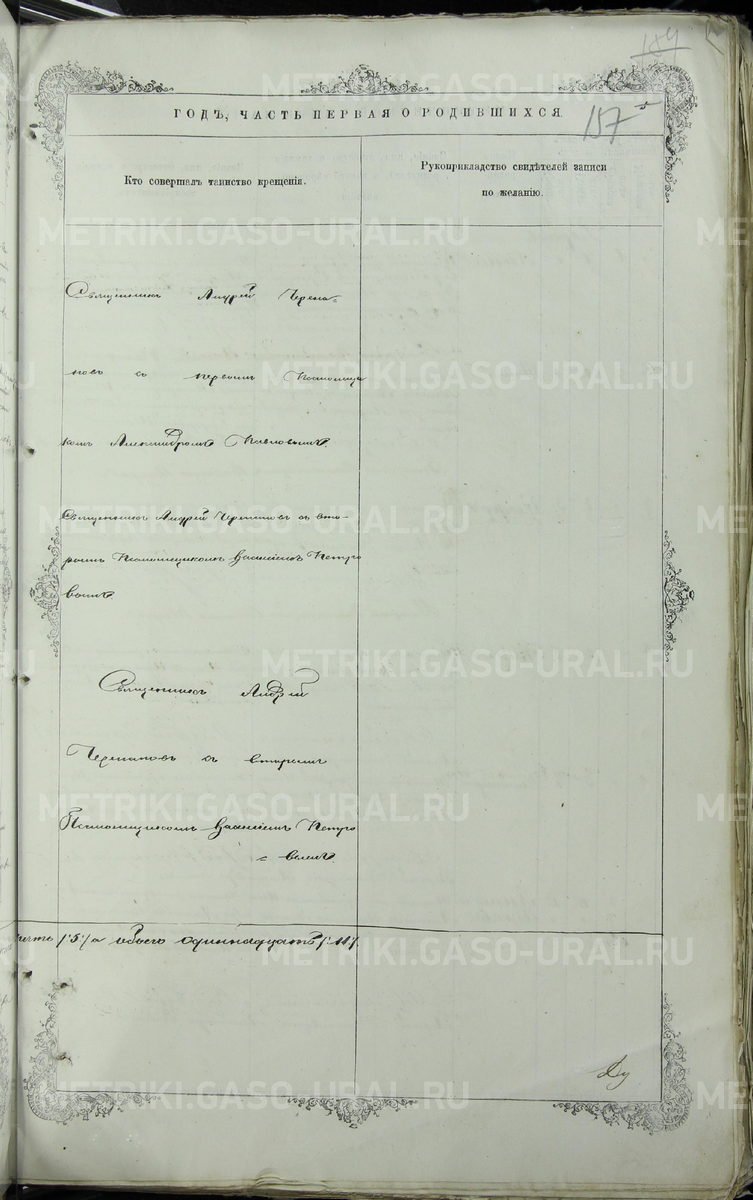 189
ГОДЪ, ЧАСТЬ ПЕРВАЯ О РОДИВШИХСЯ.
187
Кто совершалъ таинство крещенія.
Рукоприкладство свидѣтелей записи
по желанію.
Священникъ Андрей Черепа=
новъ съ первымъ Псаломщи
комъ Александромъ Павловымъ.
Священникъ Андрей Черепановъ съ вто-
рымъ Псаломщикомъ Василіемъ Петро
вымъ
Священникъ Андрей
Черепановъ съ вторымъ
Псаломщикомъ Василіемъ Петро
= вымъ.
пять /5/ а обоего одиннадцать /11/.
METRIKI.GASO-URAL.RU